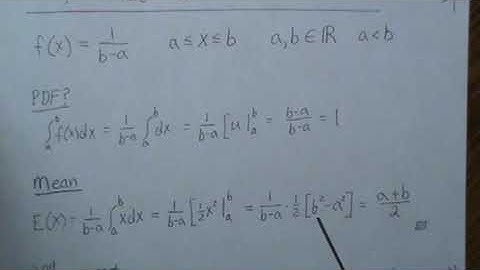 f(x) = 1/(b-a) a ≤ x ≤ b a,b ∈ ℝ a < b
PDF?
∫_a^b f(x)dx = 1/(b-a) ∫_a^b dx = 1/(b-a) [u|_a^b = (b-a)/(b-a) = 1
Mean
E(X) = 1/(b-a) ∫_a^b xdx = 1/(b-a) [½x²|_a^b = 1/(b-a) · ½[b²-a²] = (a+b)/2